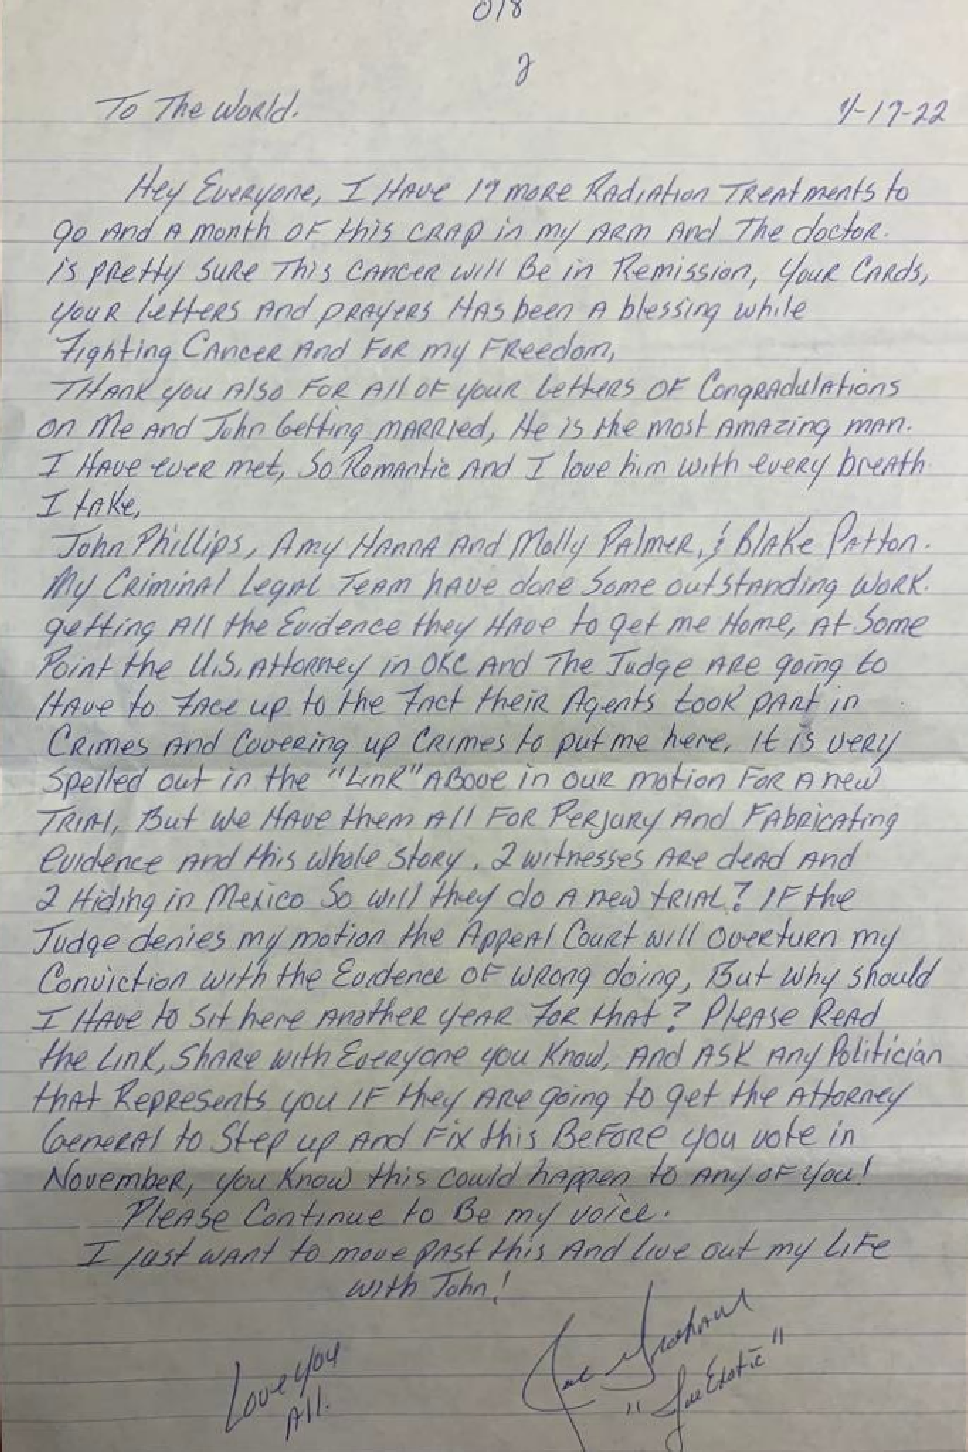 018
2
To The World. 4-17-22
Hey Everyone, I Have 19 more Radiation Treatments to
go And A month of this crap in my ARM And The doctor.
is pretty sure This cancer will Be in Remission, Your Cards,
your letters And prayers Has been A blessing while
Fighting Cancer And For my Freedom,
Thank you Also For All of your letters of Congradulations
on Me And John Getting married, He is the most Amazing man.
I Have ever met, So Romantic And I love him with every breath
I take,
John Phillips, Amy Hanna And Molly Palmer, & Blake Patton.
My Criminal Legal Team have done some outstanding work.
getting All the Evidence they Have to get me Home, At Some
Point the U.S. Attorney in OKC And The Judge Are going to
Have to Face up to the Fact their Agents took part in
Crimes And Covering up Crimes to put me here, It is very
Spelled out in the "Link" Above in our motion For A new
Trial, But we Have them All For Perjury And Fabricating
Evidence And this whole story. 2 witnesses Are dead And
2 Hiding in Mexico So will they do A new trial? If the
Judge denies my motion the Appeal Court will overturn my
Conviction with the Evidence of wrong doing, But why should
I Have to sit here Another year For that? Please Read
the Link, Share with Everyone you Know, And Ask Any Politician
that Represents you If they Are going to get the Attorney
General to Step up And Fix this Before you vote in
November, you Know this could happen to Any of You!
Please Continue to Be my voice.
I just want to move past this And live out my Life
with John!
Love You
All.
"Joe Exotic"